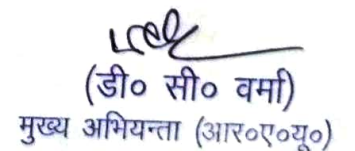 (डी० सी० वर्मा)
मुख्य अभियन्ता (आर०ए०यू०)